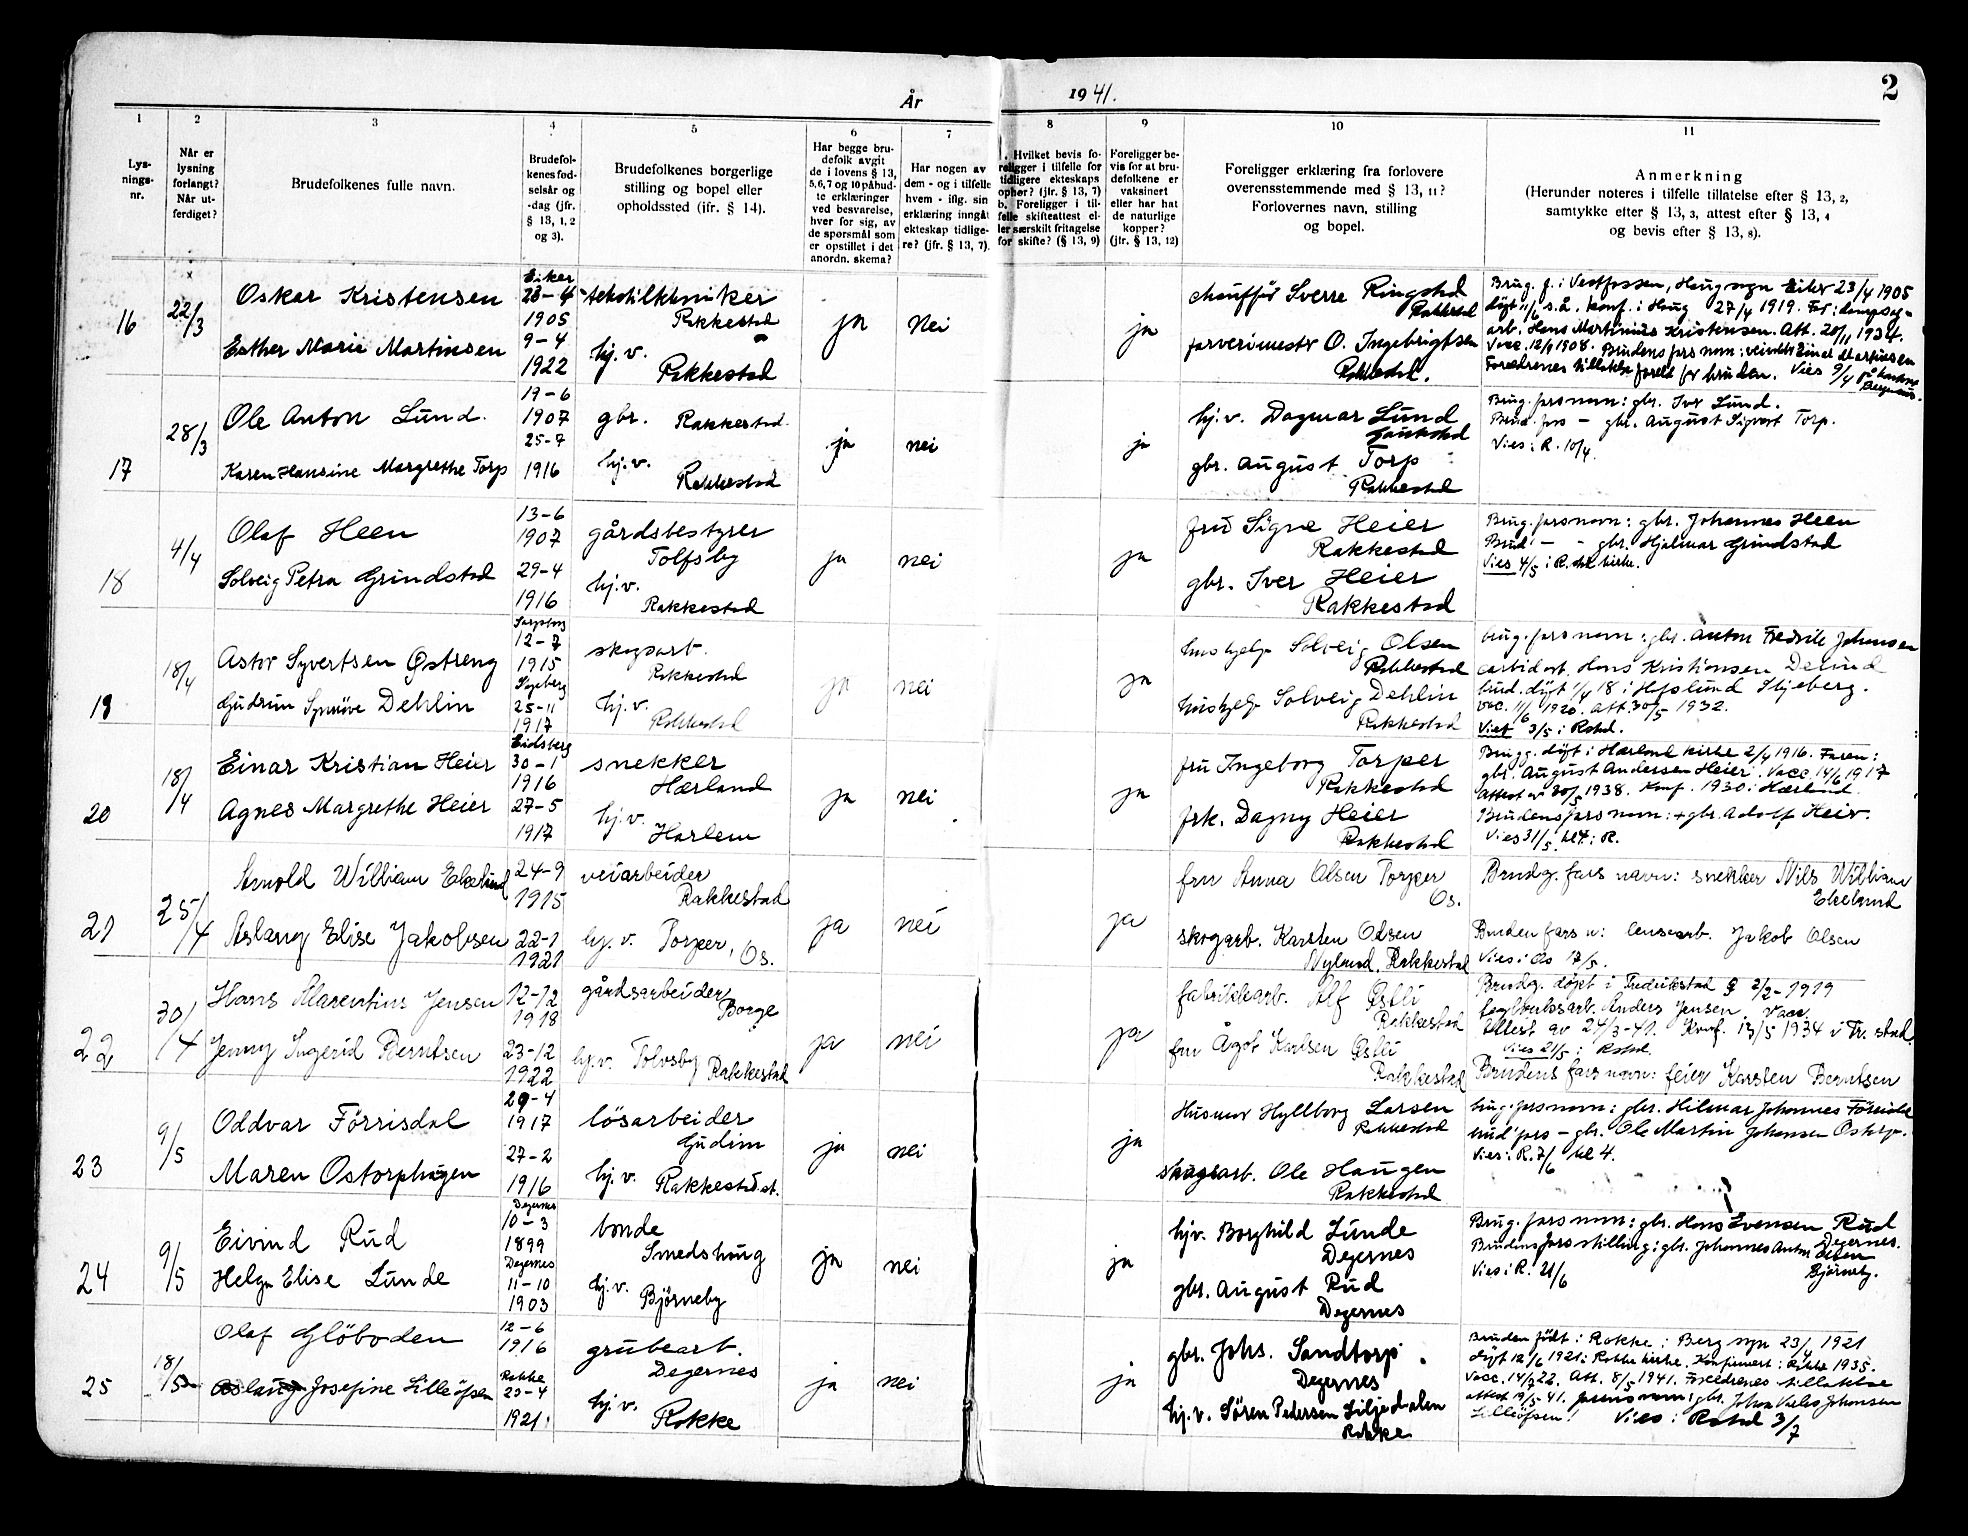 2
År 1941.
1
Lys-
nings-
nr.
2
Når er
lysning
forlangt?
Når ut-
ferdiget?
3
Brudefolkenes fulle navn.
4
Brudefol-
kenes fød-
selsår og
-dag (jfr.
§ 13, 1, 2
og 3).
5
Brudefolkenes borgerlige
stilling og bopel eller
opholdssted (ifr. § 14).
6
Har begge bru-
defolk avgit
de i lovens § 13,
5, 6, 7 og 10 påbud-
te erklæringer
ved besvarelse,
hver for sig, av
de spørsmål som
er opstillet i det
anordn. skema?
7
Har nogen av
dem - og i tilfelle
hvem - iflg. sin
erklæring inngått
ekteskap tidlige-
re? (jfr. § 13, 7).
8
Hvilket bevis fo-
religger i tilfelle for
tidligere ekteskaps
ophør? (jfr. § 13, 7)
b. Foreligger i til-
felle skifteattest el-
ler særskilt fritagelse
for skifte? (§ 13, 9)
9
Foreligger be-
vis for at bru-
defolkene er
vaksinert
eller har hat
de naturlige
kopper?
(jfr. § 13, 12)
10
Foreligger erklæring fra forlovere
overensstemmende med § 13, 11?
Forlovernes navn, stilling
og bopel.
11
Anmerkning
(Herunder noteres i tilfelle tillatelse efter § 13, 2,
samtykke efter § 13, 3, attest efter § 13, 4
og bevis efter § 13, 8).
16 22/3 Oskar Kristensen
Esther Marie Martinsen
Eiker
23-4
1905
9-4
1922
tekstiltekniker
Rakkestad
hj.v.
Rakkestad
ja nei ja
chauffør Sverre Ringstad
Rakkestad
farverimestr O. Ingebrigtsen
Rakkestad.
Brug. f. i Vestfossen, Haug sogn Eiker 23/4 1905
døpt 11/6 s.å. konf. i Haug 27/4 1919. Far: dampsag-
arb. Hans Martinius Kristensen. Att. 20/11 1934.
Vacc. 12/9 1908. Brudens fars navn: Einar Martinsen
Foreldrenes tillatelse foreld for bruden. Vies 9/4
17 28/3 Ole Anton Lund.
Karen Hansine Margrethe Torp
19-6
1907
25-7
1916
gbr. Rakkestad.
hj.v.
Rakkestad
ja nei ja
hj.v. Dagmar Lund
gbr. August Torp
Rakkestad
Brug. fars navn: gbr. Iver Lund.
Brud. fars - gbr. August Sigvart Torp.
Vies i R. 10/4.
18 4/4 Olaf Heen
Solveig Petra Grindstad
13-6
1907
29-4
1916
gårdsbestyrer
Tolfsby
hj.v.
Rakkestad
ja nei ja
fru Signe Heier
Rakkestad
gbr. Iver Heier
Rakkestad
Brug. fars navn: gbr. Johannes Heen
Brud - - gbr. Hjalmar Grindstad
Vies 4/5 i R.stad kirke.
19 18/4 Astor Syvertsen Østreng
Gudrun Synnøve Dehlin
Sarpsborg
12-7
1915
25-11
1917
skogsarb.
Rakkestad
hj.v.
Rakkestad
ja nei ja
hushjelp Solveig Olsen
Rakkestad
hushjelp Solveig Dehlin
Rakkestad
brug. fars navn: gbr. Anton Fredrik Johansen
Hans Kristiansen
brud. døpt 1/4 18 i Hafslund Skjeberg.
vac. 11/6 1920. att. 30/5 1932.
Viet 3/5 i Rstad.
20 18/4 Einar Kristian Heier
Agnes Margrethe Heier
Eidsberg
30-1
1916
27-5
1917
snekker
Hærland
hj.v.
Harlem
ja nei ja
fru Ingeborg Torper
Rakkestad
frk. Dagny Heier
Rakkestad
Brugg. døpt i Hærland kirke 2/4 1916. Faren:
gbr. August Andersen Heier. Vacc. 14/6 1917
Attest av 30/5 1938. Konf. 1930 i Hærland.
Brudens fars navn: + gbr. Adolf Heier.
Vies 31/5 kl 4 i R.
21 25/4 Arnold William Ekelund
Aslaug Elise Jakobsen
24-9
1915
22-1
1921
veiarbeider
Rakkestad
hj.v. Torper, Os.
ja nei ja
fru Anna Olsen Torper
Os.
skogarb. Karsten Olsen
Nylund, Rakkestad
Brudg. fars navn: snekker Nils William
Ekelund
Bruden fars n: Jakob Olsen
Vies i Os 17/5.
22 30/4 Hans Clarentius Jensen
Jenny Ingerid Berntsen
12-12
1918
23-12
1922
gårdsarbeider
Borge
hj.v. Tolvsby
Rakkestad
ja nei ja
fabrikkarb. Alf Østli
Rakkestad
fru Ågot Karlsen Østli
Rakkestad
Brudg. døpt i Fredrikstad 2/2-1919
teglverksarb. Anders Jensen. Vacc.
Attest av 24/3-41. Konf. 13/5 1934 i Fr.stad.
Vies 21/5 i Rstad.
Brudens fars navn: feier Karsten Berntsen
23 9/5 Oddvar Førrisdal
Maren Ostorphaugen
29-4
1917
27-2
1916
løsarbeider
Gudim
hj.v.
Rakkestad st.
ja nei ja
Husmor Hyllborg Larsen
Rakkestad
skogsarb. Ole Haugen
Rakkestad
brug. fars navn: gbr. Hilmar Johannes Førrisdal
brud fars - gbr. Ole Martin Johansen
Vies i R. 7/6 kl 4.
24 9/5 Eivind Rud
Helga Elise Lunde
Degernes
10-3
1899
Degernes
11-10
1903
bonde
Smedshaug
hj.v.
Bjørneby
ja nei ja
hjv. Borghild Lunde
Degernes
gbr. August Rud
Degernes
Brug. fars navn: gbr. Hans Evensen Rud
Degernes.
Brudens fars stilling: gbr. Johannes Anton Olsen
Bjørneby.
Vies i R. 21/6
25 18/5 Olaf Gløboden
Aslaug Josefine Lilleøpsen
12-6
1916
Rokke
23-4
1921.
grubearb.
Degernes
hj.v.
Rokke
ja nei ja
gbr. Johs. Sandtorp.
Degernes
hj.v. Søren Pedersen Liljedalen
Rokke
Bruden født i Rokke i Berg sogn 23/4 1921
døpt 12/6 1921 i Rokke kirke. Konfirmert i Rokke 1935.
Vacc. 14/7 22. Att. 8/5 1941. Foreldrenes tillatelse
attest 19/5-41. farsnavn: gbr. Johan Johansen
Vies i Rstad 3/7